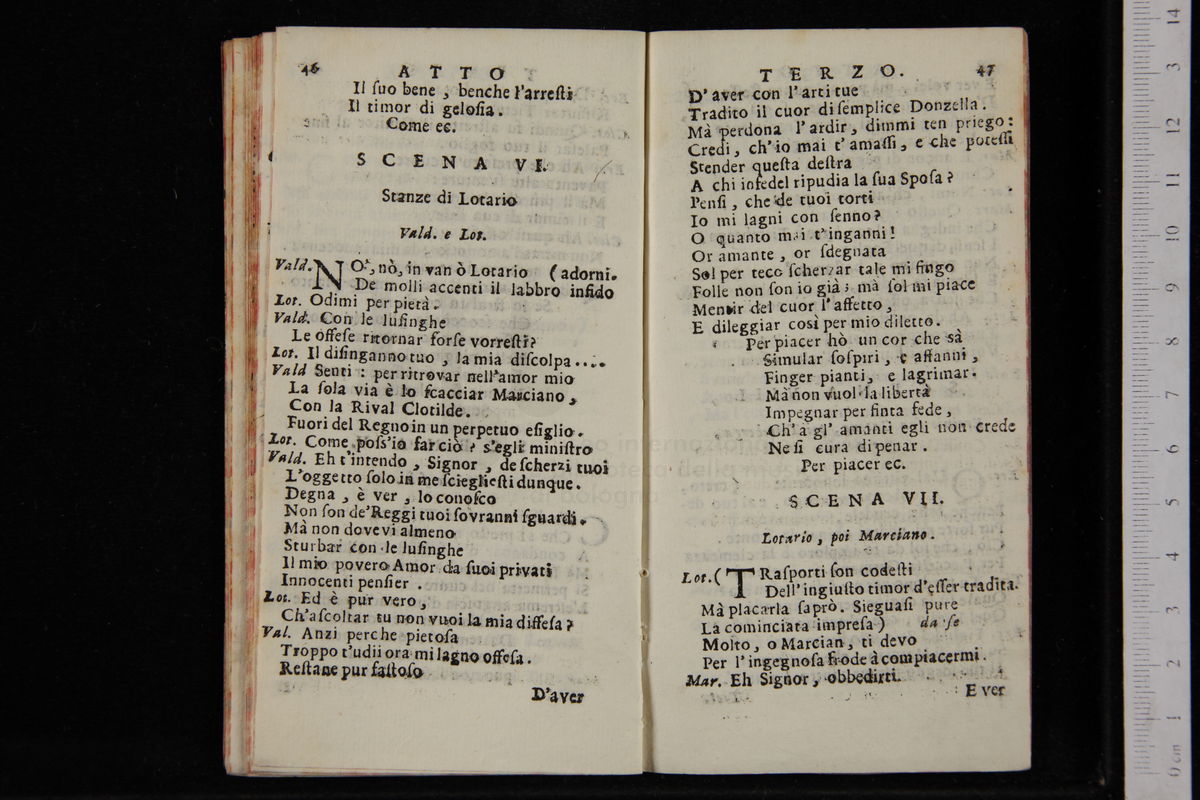 46 ATTO
Il ſuo bene, benche l'arreſti
Il timor di geloſia.
Come ec.
SCENA VI.
Stanze di Lotario
Vald. e Lot.
Vald. NO', nò, in van ò Lotario (adorni.
De molli accenti il labbro infido
Lot. Odimi per pietà.
Vald. Con le luſinghe
Le offeſe ritornar forſe vorreſti?
Lot. Il diſinganno tuo, la mia diſcolpa....
Vald Senti: per ritrovar nell'amor mio
La ſola via è lo ſcacciar Marciano,
Con la Rival Clotilde.
Fuori del Regno in un perpetuo eſiglio.
Lot. Come poſs'io far ciò? s'egli miniſtro
Vald. Eh t'intendo, Signor, de ſcherzi tuoi
L'oggetto ſolo in me ſciegliеſti dunque.
Degna, è ver, lo conoſco
Non ſon de'Reggi tuoi ſovranni ſguardi.
Mà non dovevi almeno
Sturbar con le luſinghe
Il mio povero Amor da ſuoi privati
Innocenti penſier.
Lot. Ed è pur vero,
Ch'aſcoltar tu non vuoi la mia diffeſa?
Val. Anzi perche pietoſa
Troppo t'udii ora mi lagno offeſa.
Reſtane pur faſtoſo
D'aver
TERZO. 47
D'aver con l'arti tue
Tradito il cuor di ſemplice Donzella.
Mà perdona l'ardir, dimmi ten priego:
Credi, ch'io mai t'amaſſi, e che poteſſi
Stender queſta deſtra
A chi infedel ripudia la ſua Spoſa?
Penſi, che de tuoi torti
Io mi lagni con ſenno?
O quanto mai t'inganni!
Or amante, or ſdegnata
Sol per teco ſcherzar tale mi fingo
Folle non ſon io già; mà ſol mi piace
Mentir del cuor l'affetto,
E dileggiar così per mio diletto.
Per piacer hò un cor che sà
Simular ſoſpiri, e affanni,
Finger pianti, e lagrimar.
Mà non vuol la libertà
Impegnar per finta fede,
Ch'a gl' amanti egli non crede
Ne ſi cura di penar.
Per piacer ec.
SCENA VII.
Lotario, poi Marciano.
Lot. (TRaſporti ſon codeſti
Dell'ingiuſto timor d'eſſer tradita.
Mà placarla ſaprò. Sieguaſi pure
La cominciata impreſa) da ſe
Molto, o Marcian, ti devo
Per l'ingegnoſa frode à compiacermi.
Mar. Eh Signor, obbedirti.
E ver